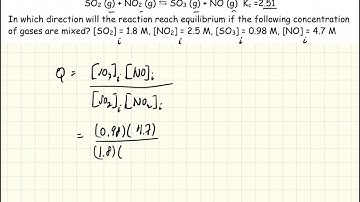 SO₂ (g) + NO₂ (g) ⇆ SO₃ (g) + NO (g) K꜀ =2.51
In which direction will the reaction reach equilibrium if the following concentration
of gases are mixed? [SO₂] = 1.8 M, [NO₂] = 2.5 M, [SO₃] = 0.98 M, [NO] = 4.7 M
i i i i
Q = [SO₃]ᵢ [NO]ᵢ
[SO₂]ᵢ [NO₂]ᵢ
= (0.98)( 4.7)
(1.8)(